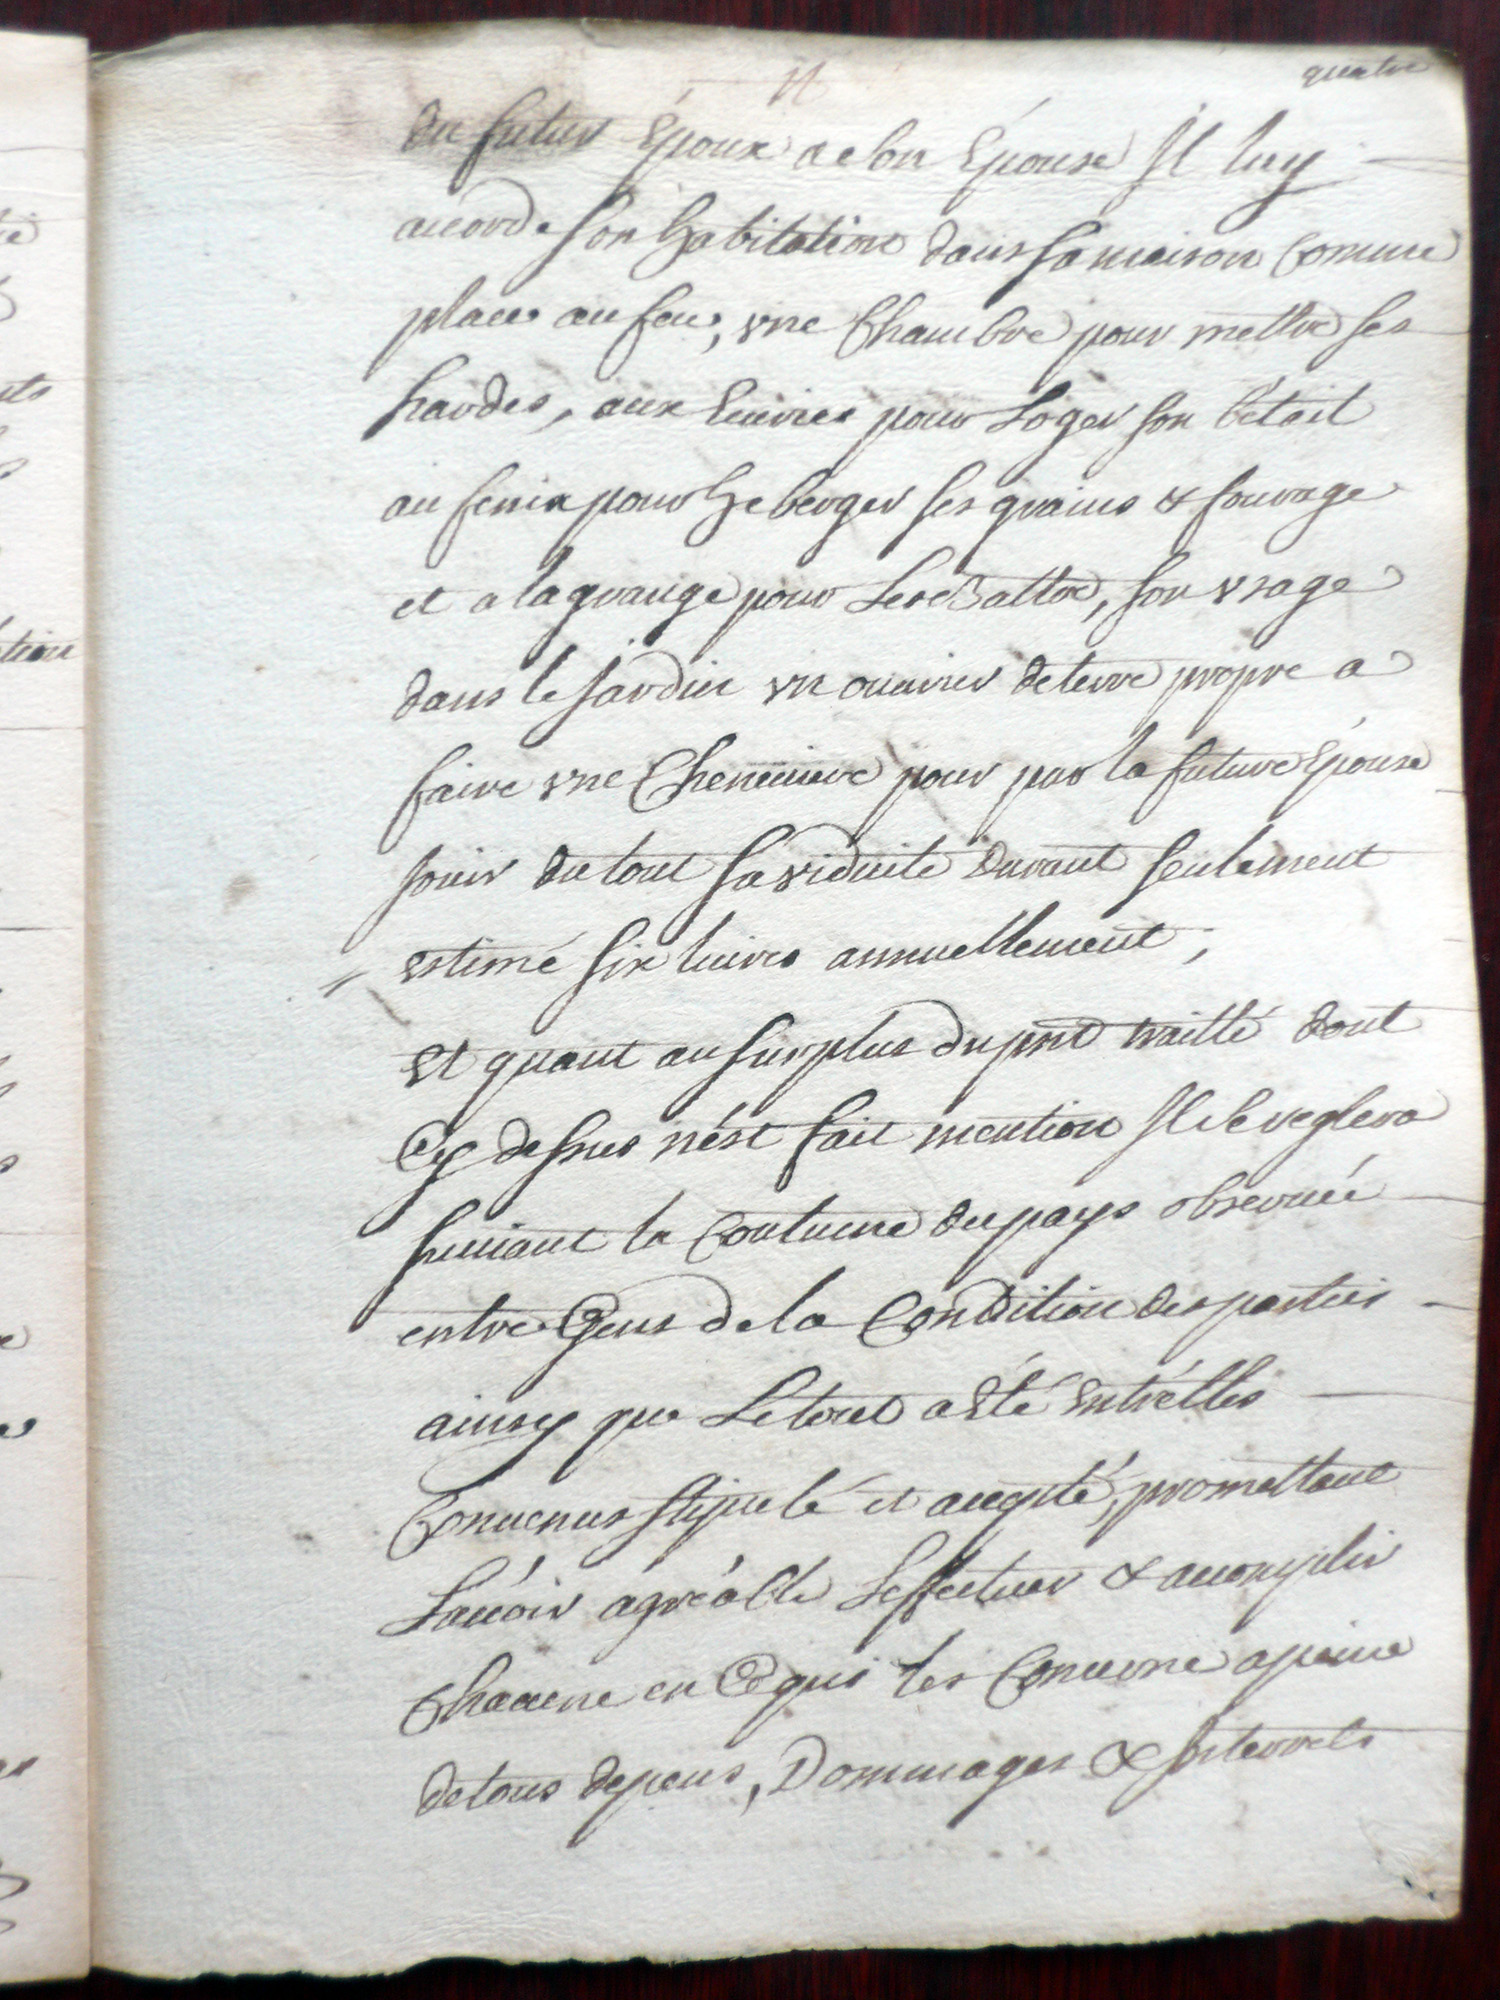 quatre
du futur Epoux a son Epouse Il luy
accorde son habitation dans sa maison comme
place au feu, vne Chambre pour mettre ses
hardes, aux Ecuries pour Loger son bétail
au feniх pour heberger ses grains & fourage
et a la grange pour Les rebattre, son vsage
dans le Jardin vn ouurier de terre propre a
faire vne Cheneuiere pour par la future Epouse
Jouir du tout sa viduité Durant seulement
estimé six liures annuellement;
Et quant au surplus du pnt traitté dont
Cy dessus n'ést fait mention Il se reglera
suiuant la Coutume du pays obseruée
entre Gens de la Condition des parties
ainsy que Le tout a Eté Entr'elles
Conuenus stipulé et accepté, promettant
L'auoir agréable L'effectuer & accomplir
Chacune en Ce qui les Concerne a peine
de tous depens, Dommages & Interrets